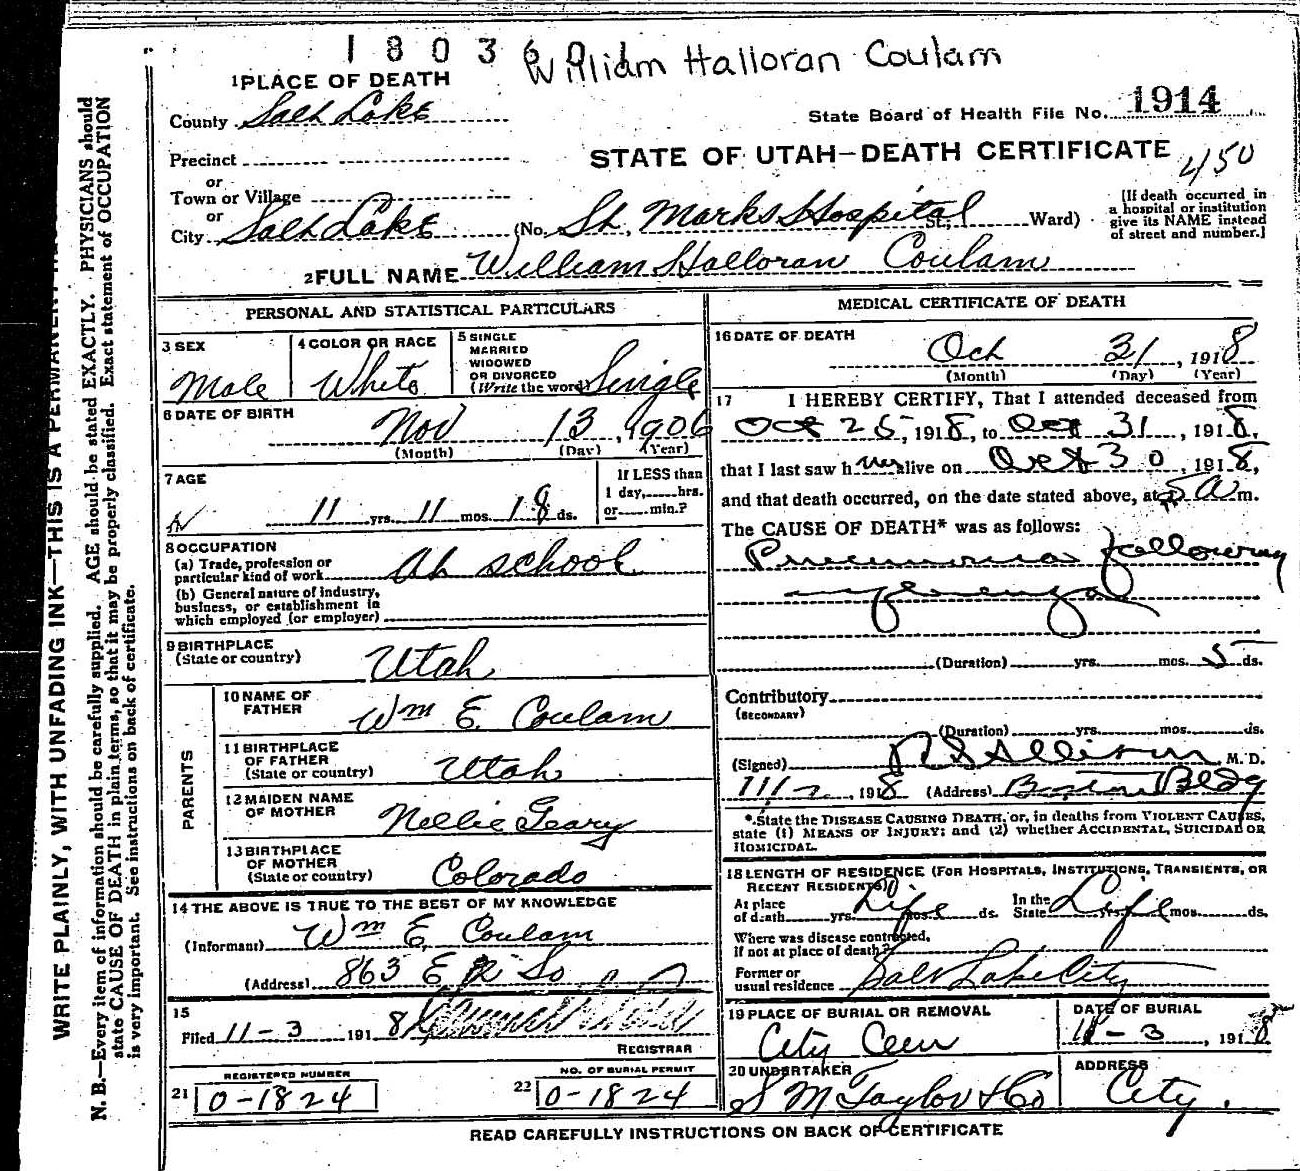 1 8 0 3 6 0 1
William Halloran Coulam
1 PLACE OF DEATH
County Salt Lake
State Board of Health File No. 1914
Precinct
STATE OF UTAH—DEATH CERTIFICATE
450
or
Town or Village
or
City Salt Lake (No. St. Marks Hospital St.; Ward)
[If death occurred in
a hospital or institution
give its NAME instead
of street and number.]
2 FULL NAME William Halloran Coulam
PERSONAL AND STATISTICAL PARTICULARS
3 SEX
Male
4 COLOR OR RACE
White
5 SINGLE
MARRIED
WIDOWED
OR DIVORCED
(Write the word) Single
6 DATE OF BIRTH
Nov 13, 1906
(Month) (Day) (Year)
7 AGE
11 yrs. 11 mos. 18 ds.
If LESS than
1 day, hrs.
or min.?
8 OCCUPATION
(a) Trade, profession or
particular kind of work At school
(b) General nature of industry,
business, or establishment in
which employed (or employer)
9 BIRTHPLACE
(State or country) Utah
PARENTS
10 NAME OF
FATHER Wm E. Coulam
11 BIRTHPLACE
OF FATHER
(State or country) Utah
12 MAIDEN NAME
OF MOTHER Nellie Geary
13 BIRTHPLACE
OF MOTHER
(State or country) Colorado
14 THE ABOVE IS TRUE TO THE BEST OF MY KNOWLEDGE
(Informant) Wm E. Coulam
(Address) 863 E So
15
Filed 11-3 1918
REGISTRAR
REGISTERED NUMBER
21 0-1824
NO. OF BURIAL PERMIT
22 0-1824
MEDICAL CERTIFICATE OF DEATH
16 DATE OF DEATH
Oct 31, 1918
(Month) (Day) (Year)
17 I HEREBY CERTIFY, That I attended deceased from
Oct 25, 1918, to Oct 31, 1918,
that I last saw him alive on Oct 30, 1918,
and that death occurred, on the date stated above, at 5 a m.
The CAUSE OF DEATH* was as follows:
Pneumonia following
influenza
(Duration) yrs. mos. 5 ds.
Contributory
(SECONDARY)
(Duration) yrs. mos. ds.
(Signed) R S Allison M. D.
11/2, 1918 (Address) Boston Bldg
*State the DISEASE CAUSING DEATH, or, in deaths from VIOLENT CAUSES,
state (1) MEANS OF INJURY; and (2) whether ACCIDENTAL, SUICIDAL OR
HOMICIDAL.
18 LENGTH OF RESIDENCE (FOR HOSPITALS, INSTITUTIONS, TRANSIENTS, OR
RECENT RESIDENTS)
At place
of death yrs. Life mos. ds.
In the
State Life yrs. mos. ds.
Where was disease contracted,
if not at place of death?
Former or
usual residence Salt Lake City
19 PLACE OF BURIAL OR REMOVAL
City Cem
DATE OF BURIAL
11-3, 1918
20 UNDERTAKER
S M Taylor & Co
ADDRESS
City.
READ CAREFULLY INSTRUCTIONS ON BACK OF CERTIFICATE
WRITE PLAINLY, WITH UNFADING INK—THIS IS A PERMANENT
N. B.—Every item of information should be carefully supplied. AGE should be stated EXACTLY. PHYSICIANS should
state CAUSE OF DEATH in plain terms, so that it may be properly classified. Exact statement of OCCUPATION
is very important. See instructions on back of certificate.